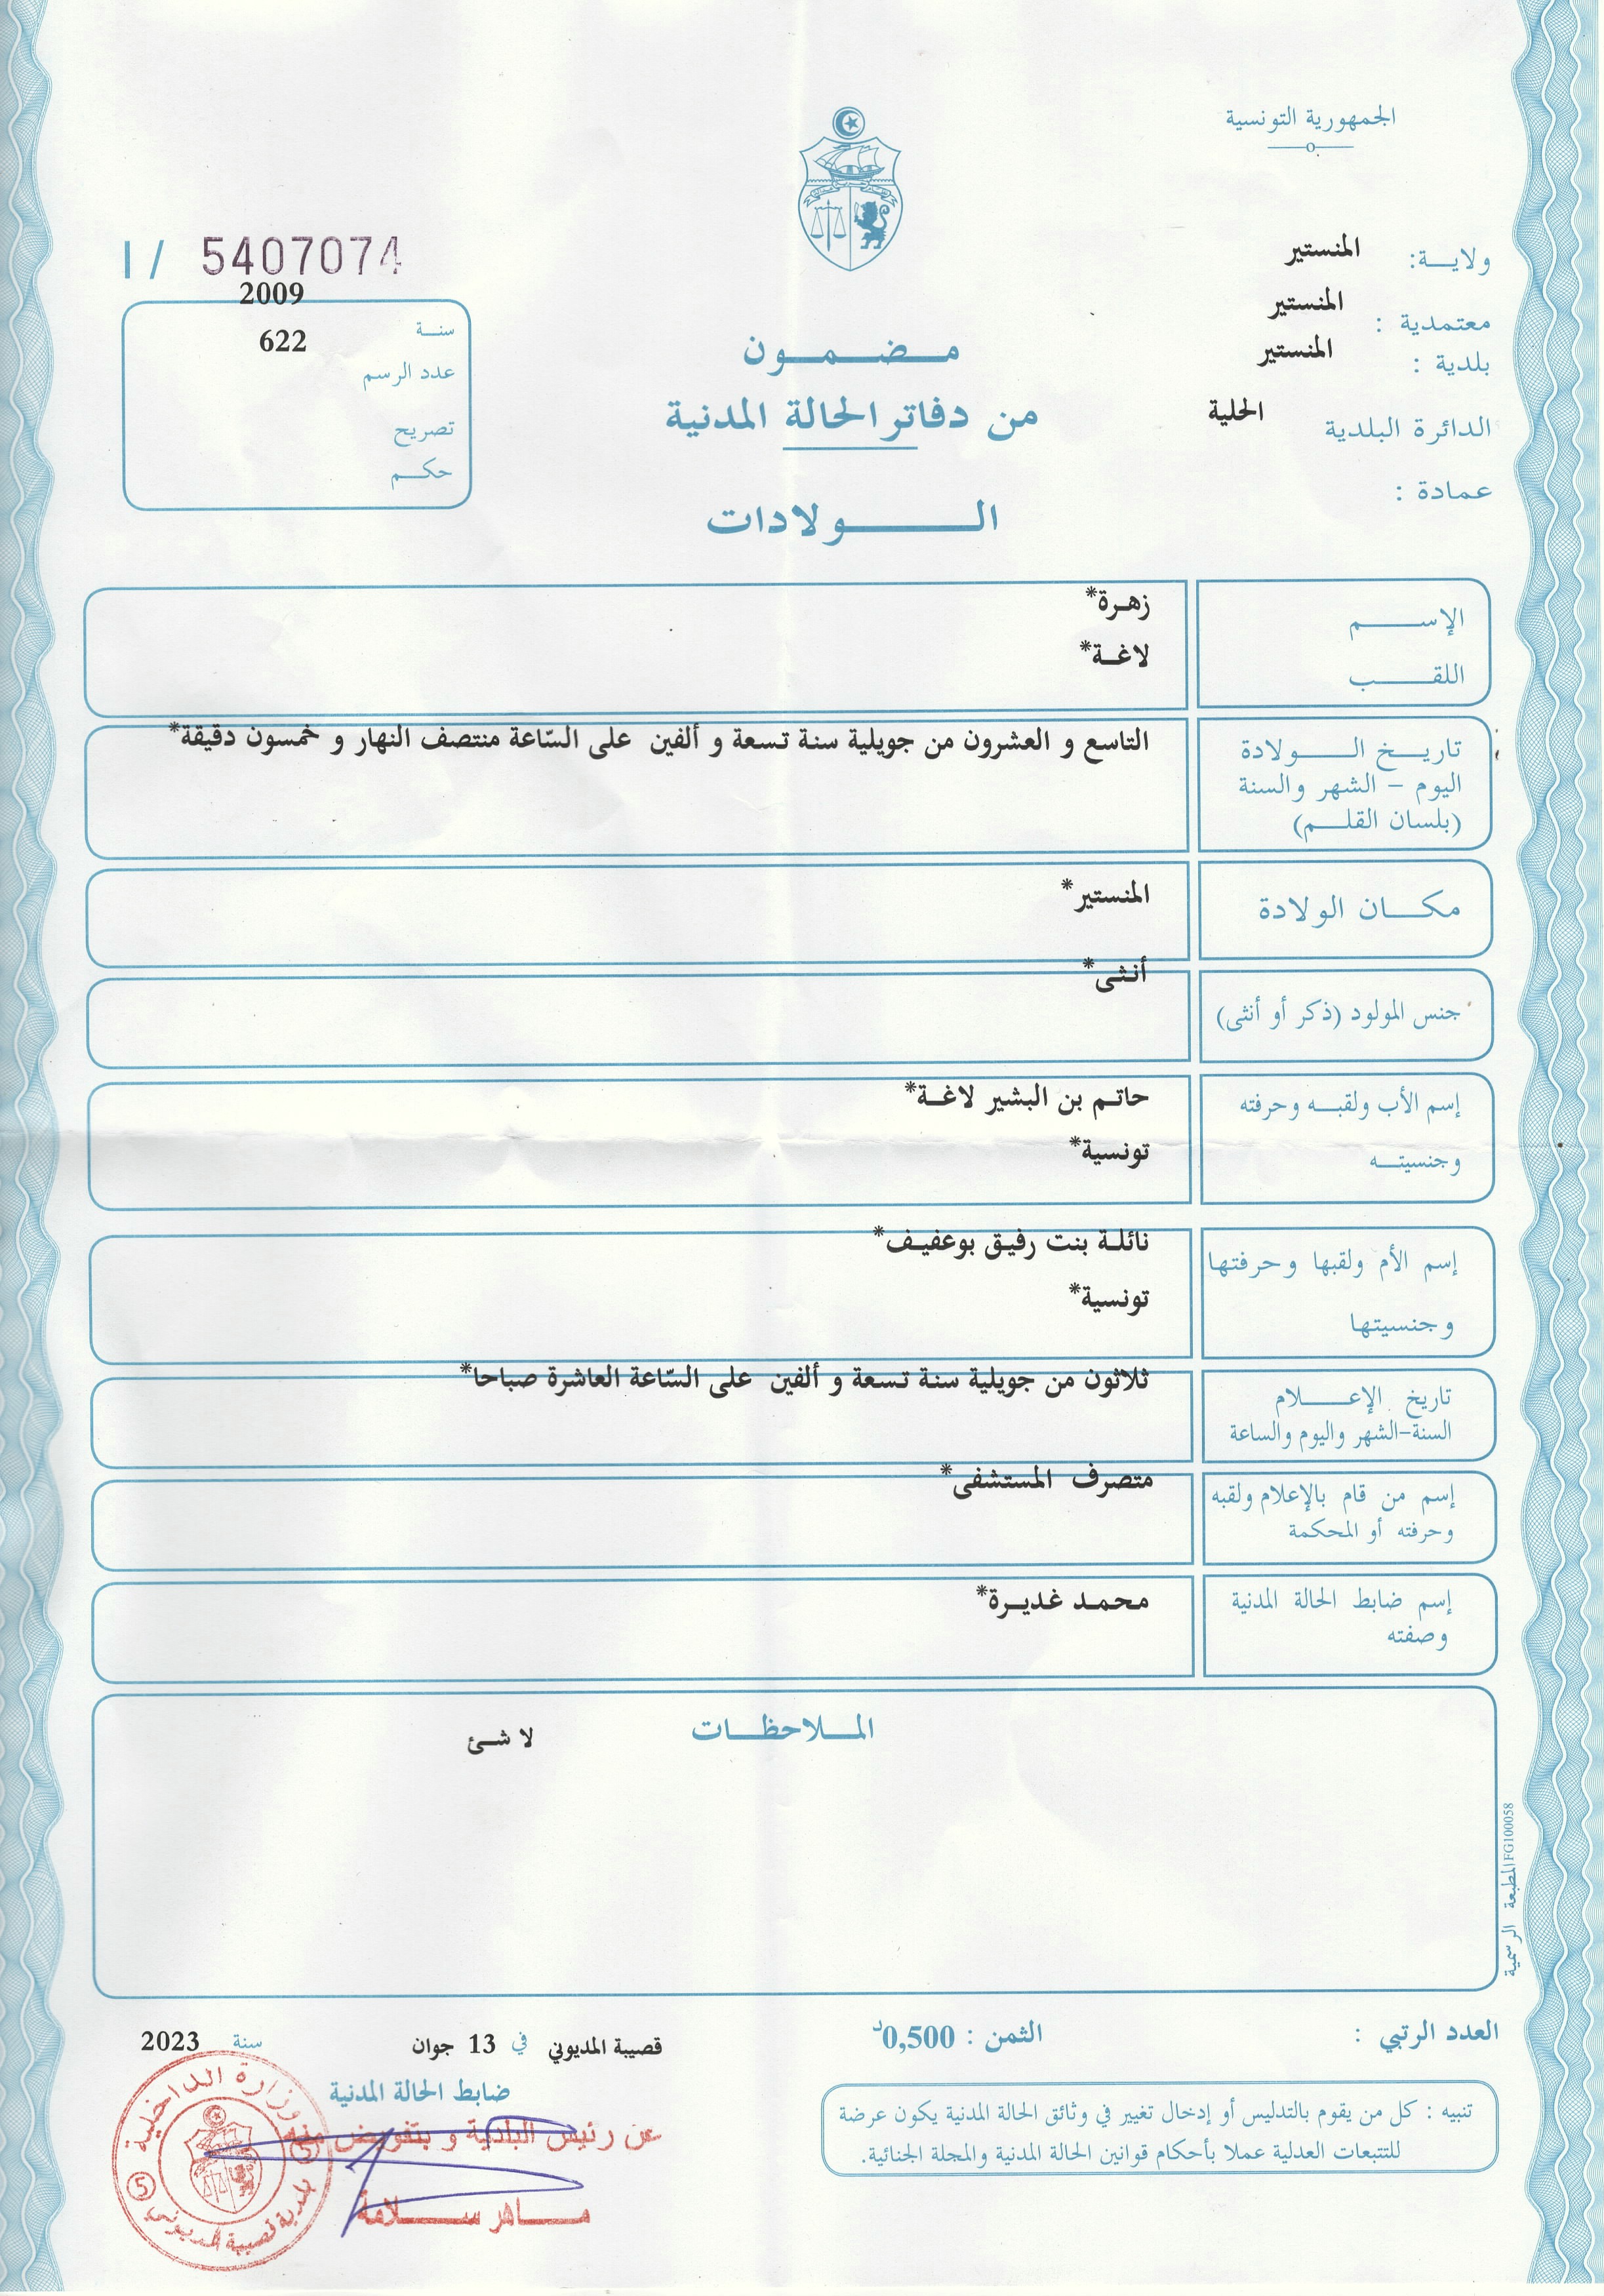 الجمهورية التونسية
ولاية: المنستير
معتمدية : المنستير
بلدية : المنستير
الدائرة البلدية الحلية
عمادة :
I / 5407074
سنة 2009
عدد الرسم 622
تصريح
حكم
مضمون
من دفاتر الحالة المدنية
الولادات
الإسم زهرة*
اللقب لاغة*
تاريخ الولادة
اليوم - الشهر والسنة
(بلسان القلم)
التاسع و العشرون من جويلية سنة تسعة و ألفين على السّاعة منتصف النهار و خمسون دقيقة*
مكان الولادة المنستير*
جنس المولود (ذكر أو أنثى) أنثى*
إسم الأب ولقبه وحرفته حاتم بن البشير لاغة*
وجنسيته تونسية*
إسم الأم ولقبها وحرفتها نائلة بنت رفيق بوعفيف*
وجنسيتها تونسية*
تاريخ الإعلام
السنة-الشهر واليوم والساعة
ثلاثون من جويلية سنة تسعة و ألفين على السّاعة العاشرة صباحا*
إسم من قام بالإعلام ولقبه
وحرفته أو المحكمة
متصرف المستشفى*
إسم ضابط الحالة المدنية
وصفته
محمد غديرة*
الملاحظات
لا شئ
المطبعة الرسمية FG100058
العدد الرتبي :
الثمن : 0,500د
قصيبة المديوني في 13 جوان سنة 2023
ضابط الحالة المدنية
عن رئيس البلدية و بتفويض منه
ماهر سلامة
وزارة الداخلية
بلدية قصيبة المديوني
5
تنبيه : كل من يقوم بالتدليس أو إدخال تغيير في وثائق الحالة المدنية يكون عرضة
للتتبعات العدلية عملا بأحكام قوانين الحالة المدنية والمجلة الجنائية.